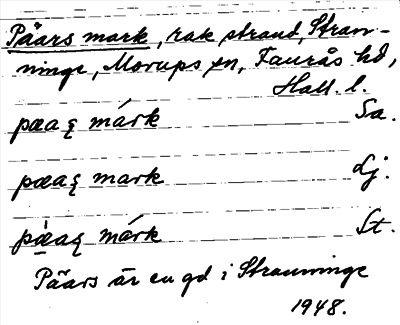 Päars mark, rak strand, Stran-
ninge, Morups sn, Faurås hd,
Hall. l.
pæaʂ márk Sa.
pæaʂ mark Lj.
pæ̀aʂ márk St.
Päars är en gd i Stranninge
1948.